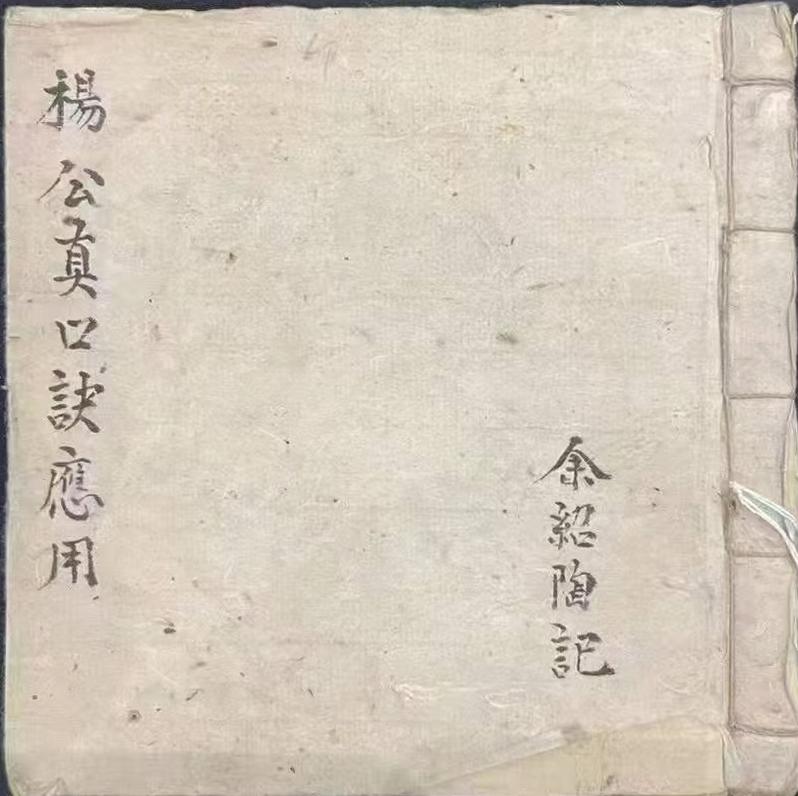 楊公眞口訣應用
余紹陶記